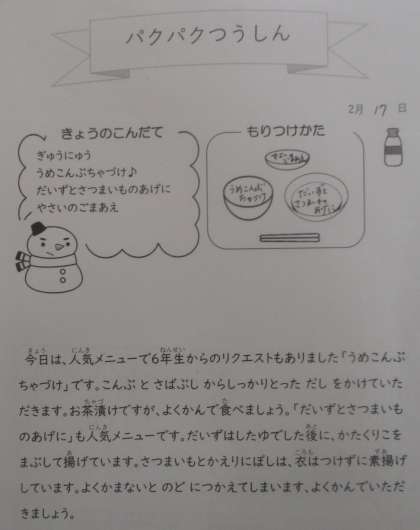 パクパクつうしん
2月 17 日
きょうのこんだて
ぎゅうにゅう
うめこんぶちゃづけ♪
だいずとさつまいものあげに
やさいのごまあえ
もりつけかた
うめこんぶ
おちゃづけ
だいずと
さつまいもの
あげに
今日は、人気メニューで6年生からのリクエストもありました「うめこんぶ
ちゃづけ」です。こんぶ と さばぶし からしっかりとった だし をかけていた
だきます。お茶漬けですが、よくかんで食べましょう。「だいずとさつまいも
のあげに」も人気メニューです。だいずはしたゆでした後に、かたくりこを
まぶして揚げています。さつまいもとかえりにぼしは、衣はつけずに素揚げ
しています。よくかまないと のど につかえてしまいます、よくかんでいただ
きましょう。